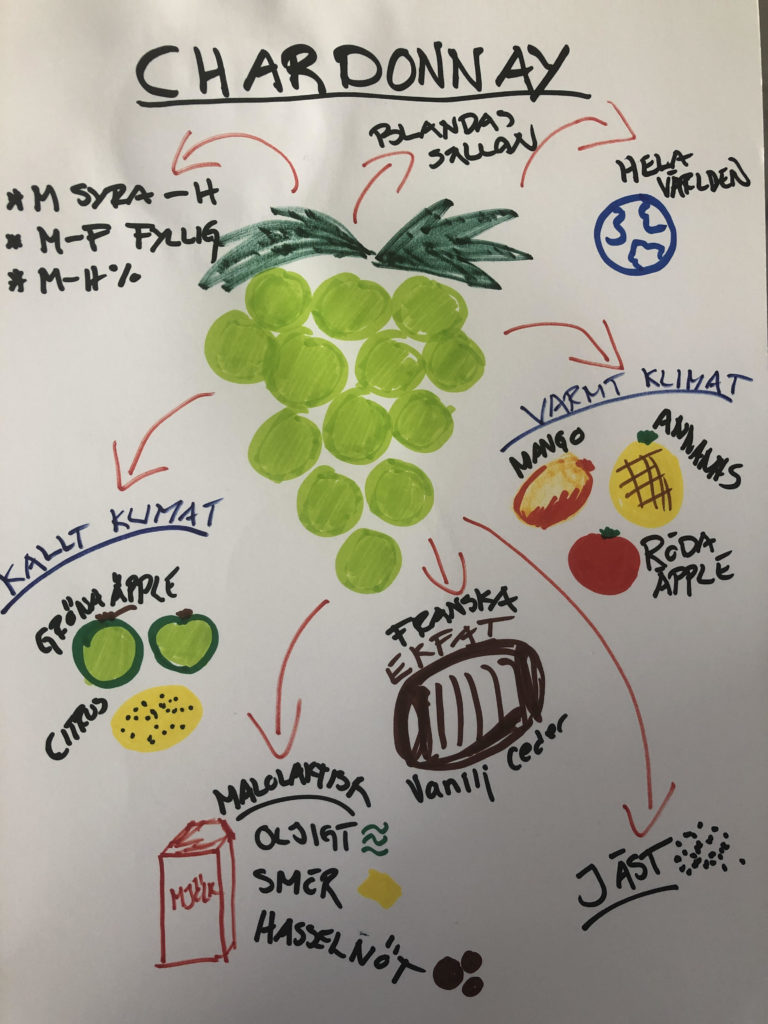 CHARDONNAY
BLANDAS
SÄLLAN
HELA
VÄRLDEN
* M SYRA – H
* M–F FYLLIG
* M–H %
VARMT KLIMAT
MANGO
ANANAS
RÖDA
ÄPPLE
KALLT KLIMAT
GRÖNA ÄPPLE
CITRUS
FRANSKA
EKFAT
Vanilj ceder
MALOLAKTISK
MJÖLK
OLJIGT
SMÖR
HASSELNÖT
JÄST